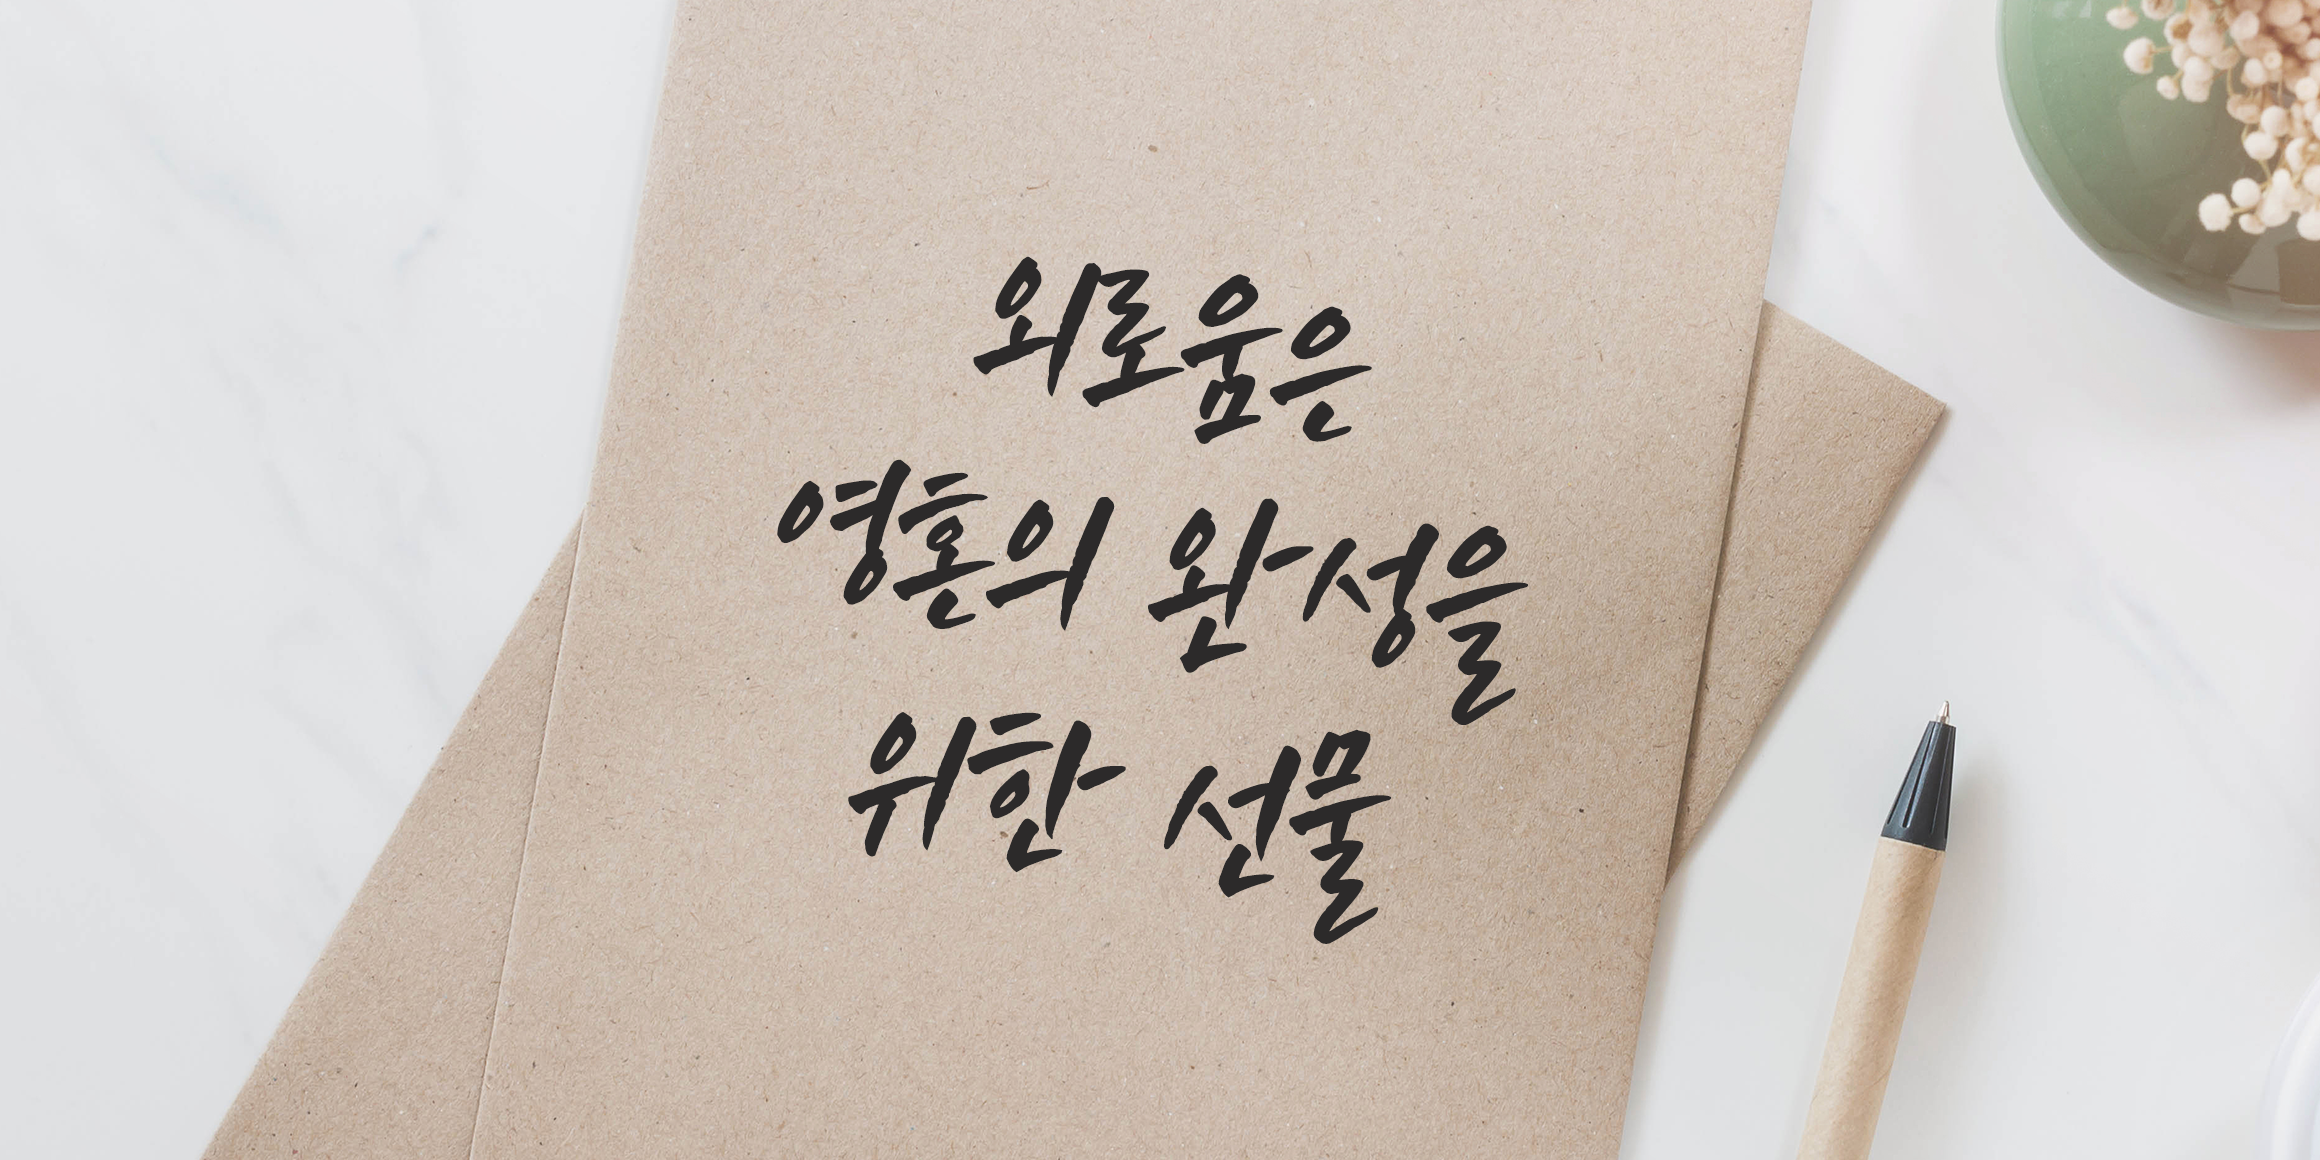 외로움은
영혼의 완성을
위한 선물